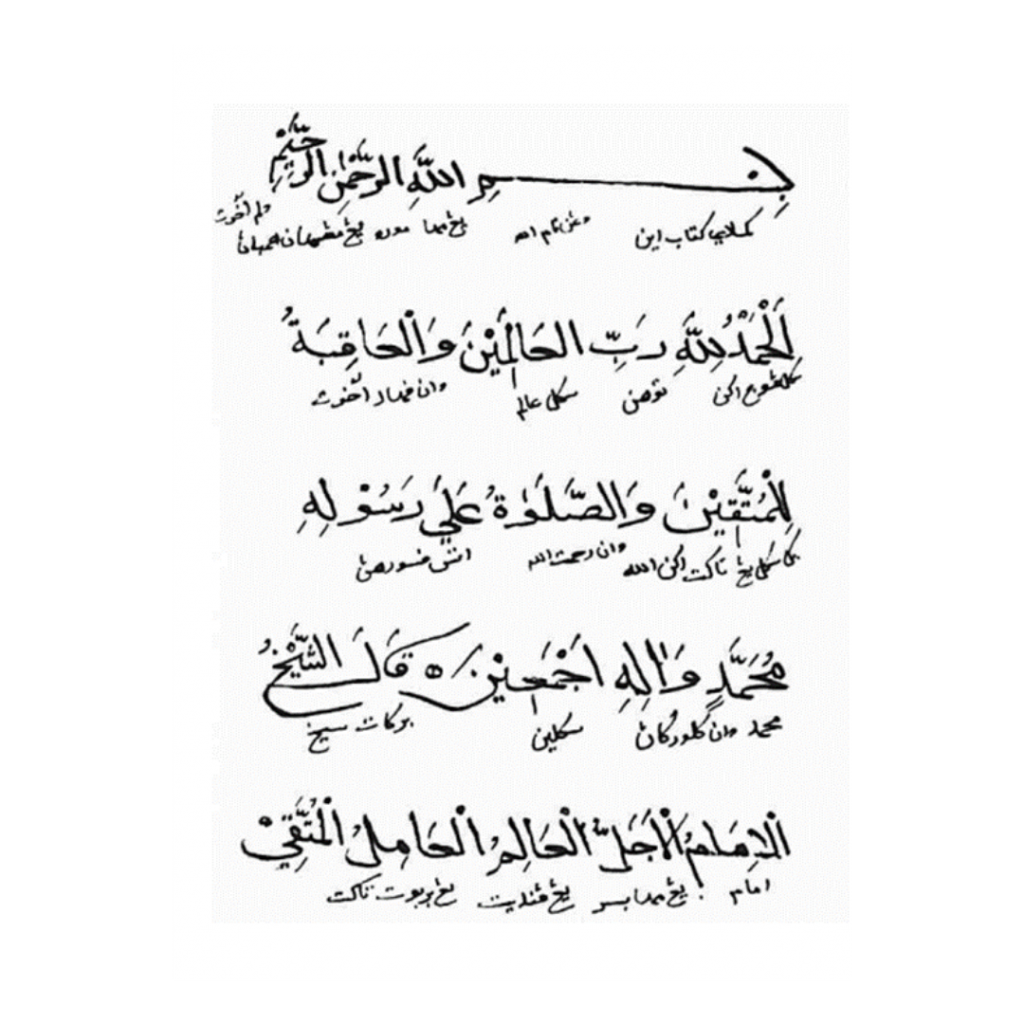 بِسْمِ اللَّهِ الرَّحْمٰنِ الرَّحِيْمِ
كملاي كتاب اين دڠن نام الله يڠ مها موره يڠ مڠسهاني همباڽ
دلم اخرة
اَلْحَمْدُ لِلَّهِ رَبِّ الْعَالَمِيْنَ وَالْعَاقِبَةُ
سكل ڤوج اكن توهن سكل عالم دان اخرة
لِلْمُتَّقِيْنَ وَالصَّلٰوةُ عَلَيَ رَسُوْلِهِ
سكل يڠ تاكت اكن الله دان رحمت الله اتس
مُحَمَّدٍ وَاٰلِهِ اَجْمَعِيْنَ قَالَ الشَّيْخُ
محمد دان كلورݢاڽ سكلين بركات شيخ
الْاِمَامُ الْاَجَلُّ الْعَالِمُ الْعَامِلُ الْمُتَّقِيْ
امام يڠ مها بسر يڠ ڤنديت يڠ بربوت تاكت